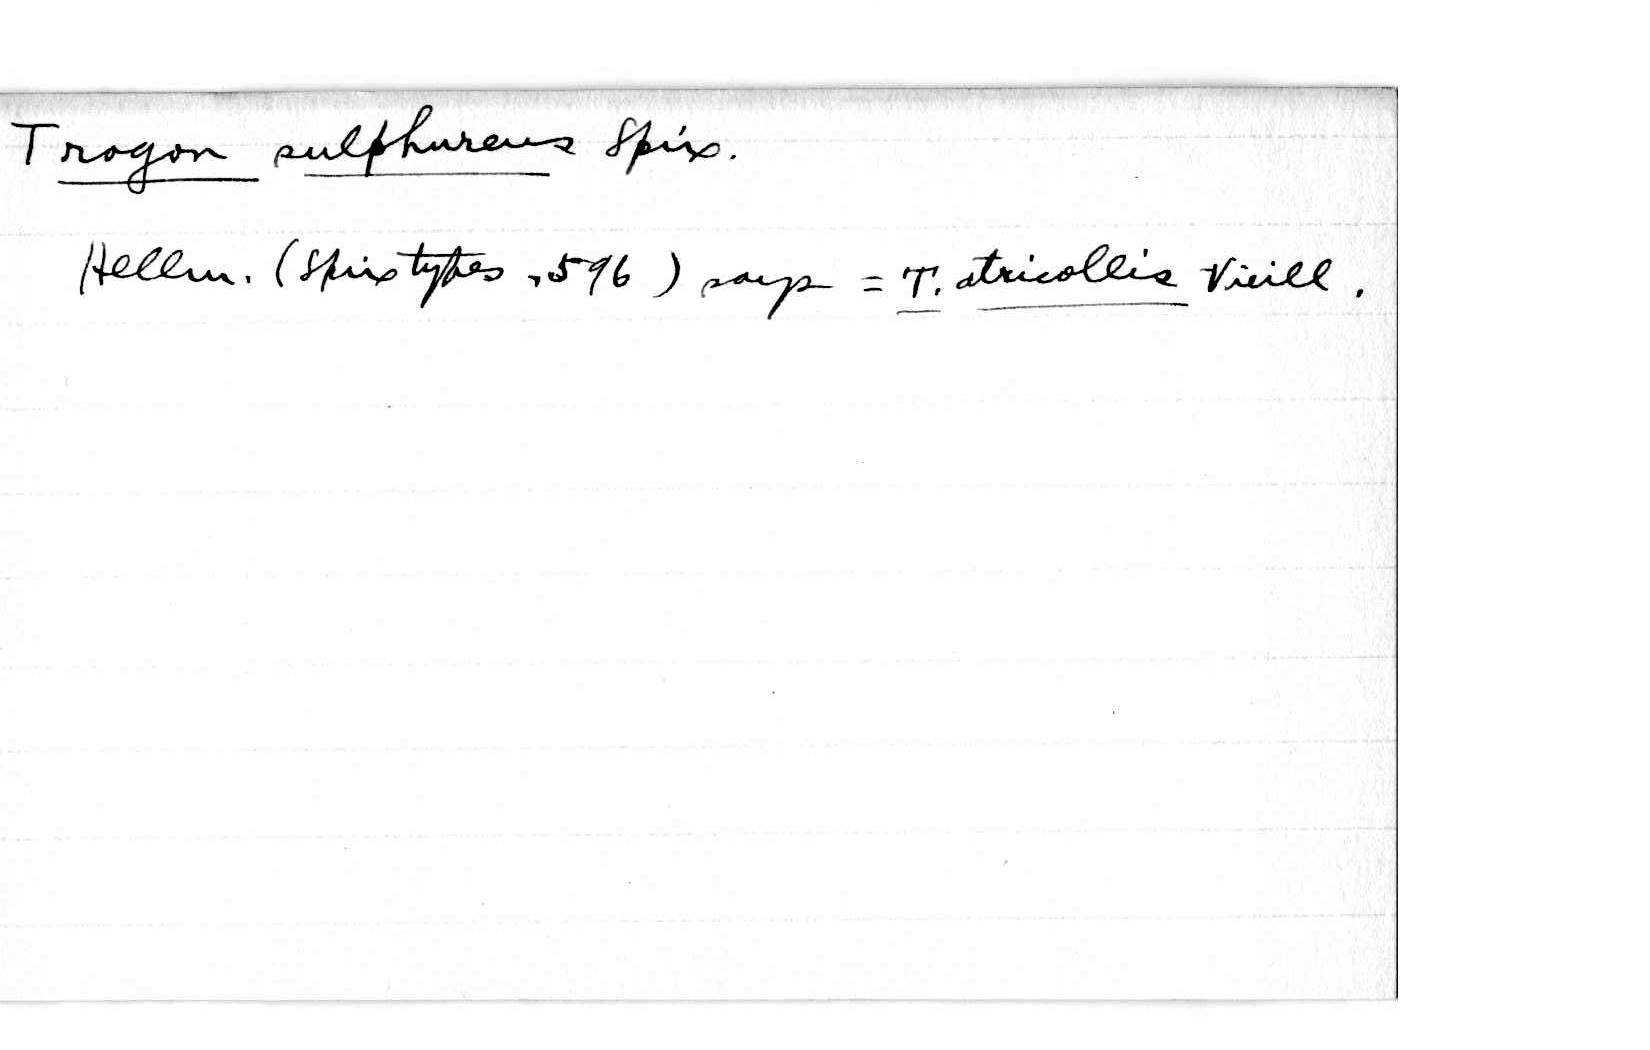 Trogon sulphureus Spix.
Hellm. (Spix types, 596) says = T. atricollis Vieill.